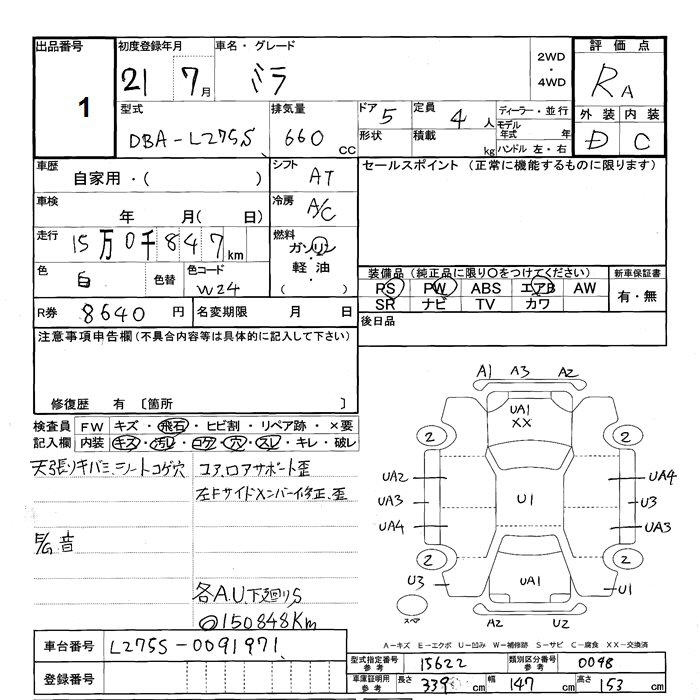 出品番号 初度登録年月 車名・グレード 評価点
1 21 7月 ミラ 2WD・4WD RA
型式 排気量 ドア 5 定員 4人 ディーラー・並行 外装 内装
DBA-L275S 660cc 形状 積載 kg モデル年式 年 ハンドル 左・右 D C
車歴 シフト セールスポイント (正常に機能するものに限ります)
自家用・( ) AT
車検 年 月( 日) 冷房 A/C
走行 15万0千847km 燃料 ガソリン・軽油 ( )
色 白 色替 色コード W24 装備品 (純正品に限り○をつけてください) 新車保証書
PS PW ABS エアB AW 有・無
SR ナビ TV カワ
R券 8640円 名変期限 月 日 後日品
注意事項申告欄 (不具合内容等は具体的に記入して下さい)
修復歴 有 〔箇所 〕
検査員記入欄 FW キズ・飛石・ヒビ割・リペア跡・×要
内装 キズ・汚レ・コゲ・穴・スレ・キレ・破レ
天張リキバミ、シートコゲ穴 コア、ロアサポート歪
左Fサイドメンバー修正、歪
音
各A.U、下廻りS
◎150848Km
A1 A3 A2
UA1
XX
2 2
UA2 UA4
UA3 U1 U3
UA4 UA3
2 2
U3 UA1 U1
スペア A2 U2
A-キズ E-エクボ U-凹み W-補修跡 S-サビ C-腐食 XX-交換済
車台番号 L275S-0091971
型式指定番号 参考 15622 類別区分番号 参考 0098
登録番号
車庫証明用 参考 長さ 339cm 幅 147cm 高さ 153cm